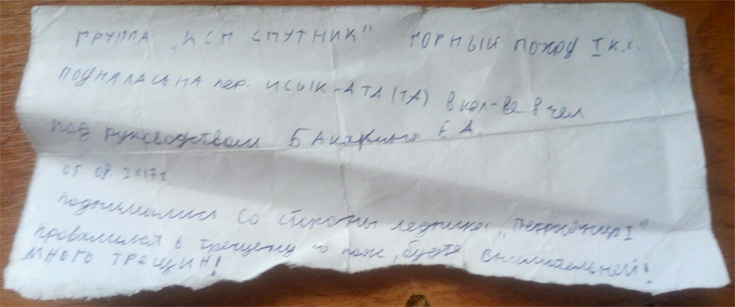 ГРУППА „КСП СПУТНИК" ГОРНЫЙ ПОХОД I к.с.
ПОДНЯЛАСЬ НА пер. ИСЫК-АТА (1А) в кол-ве 8 чел
под руководством Е.А.
05.08.2017г
поднимались со стороны ледника
провалился в трещину по пояс, будте внимательней!
МНОГО ТРЕЩИН!